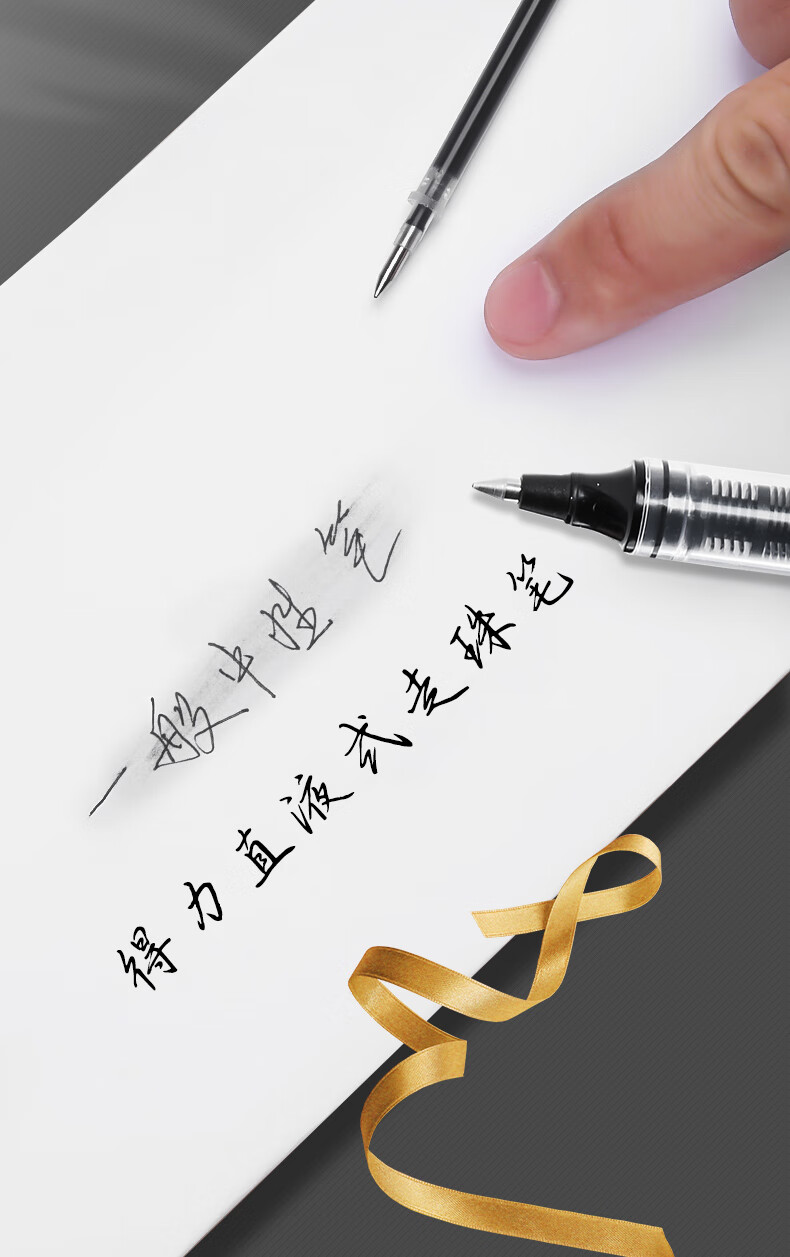 一般中性笔
得力直液式走珠笔